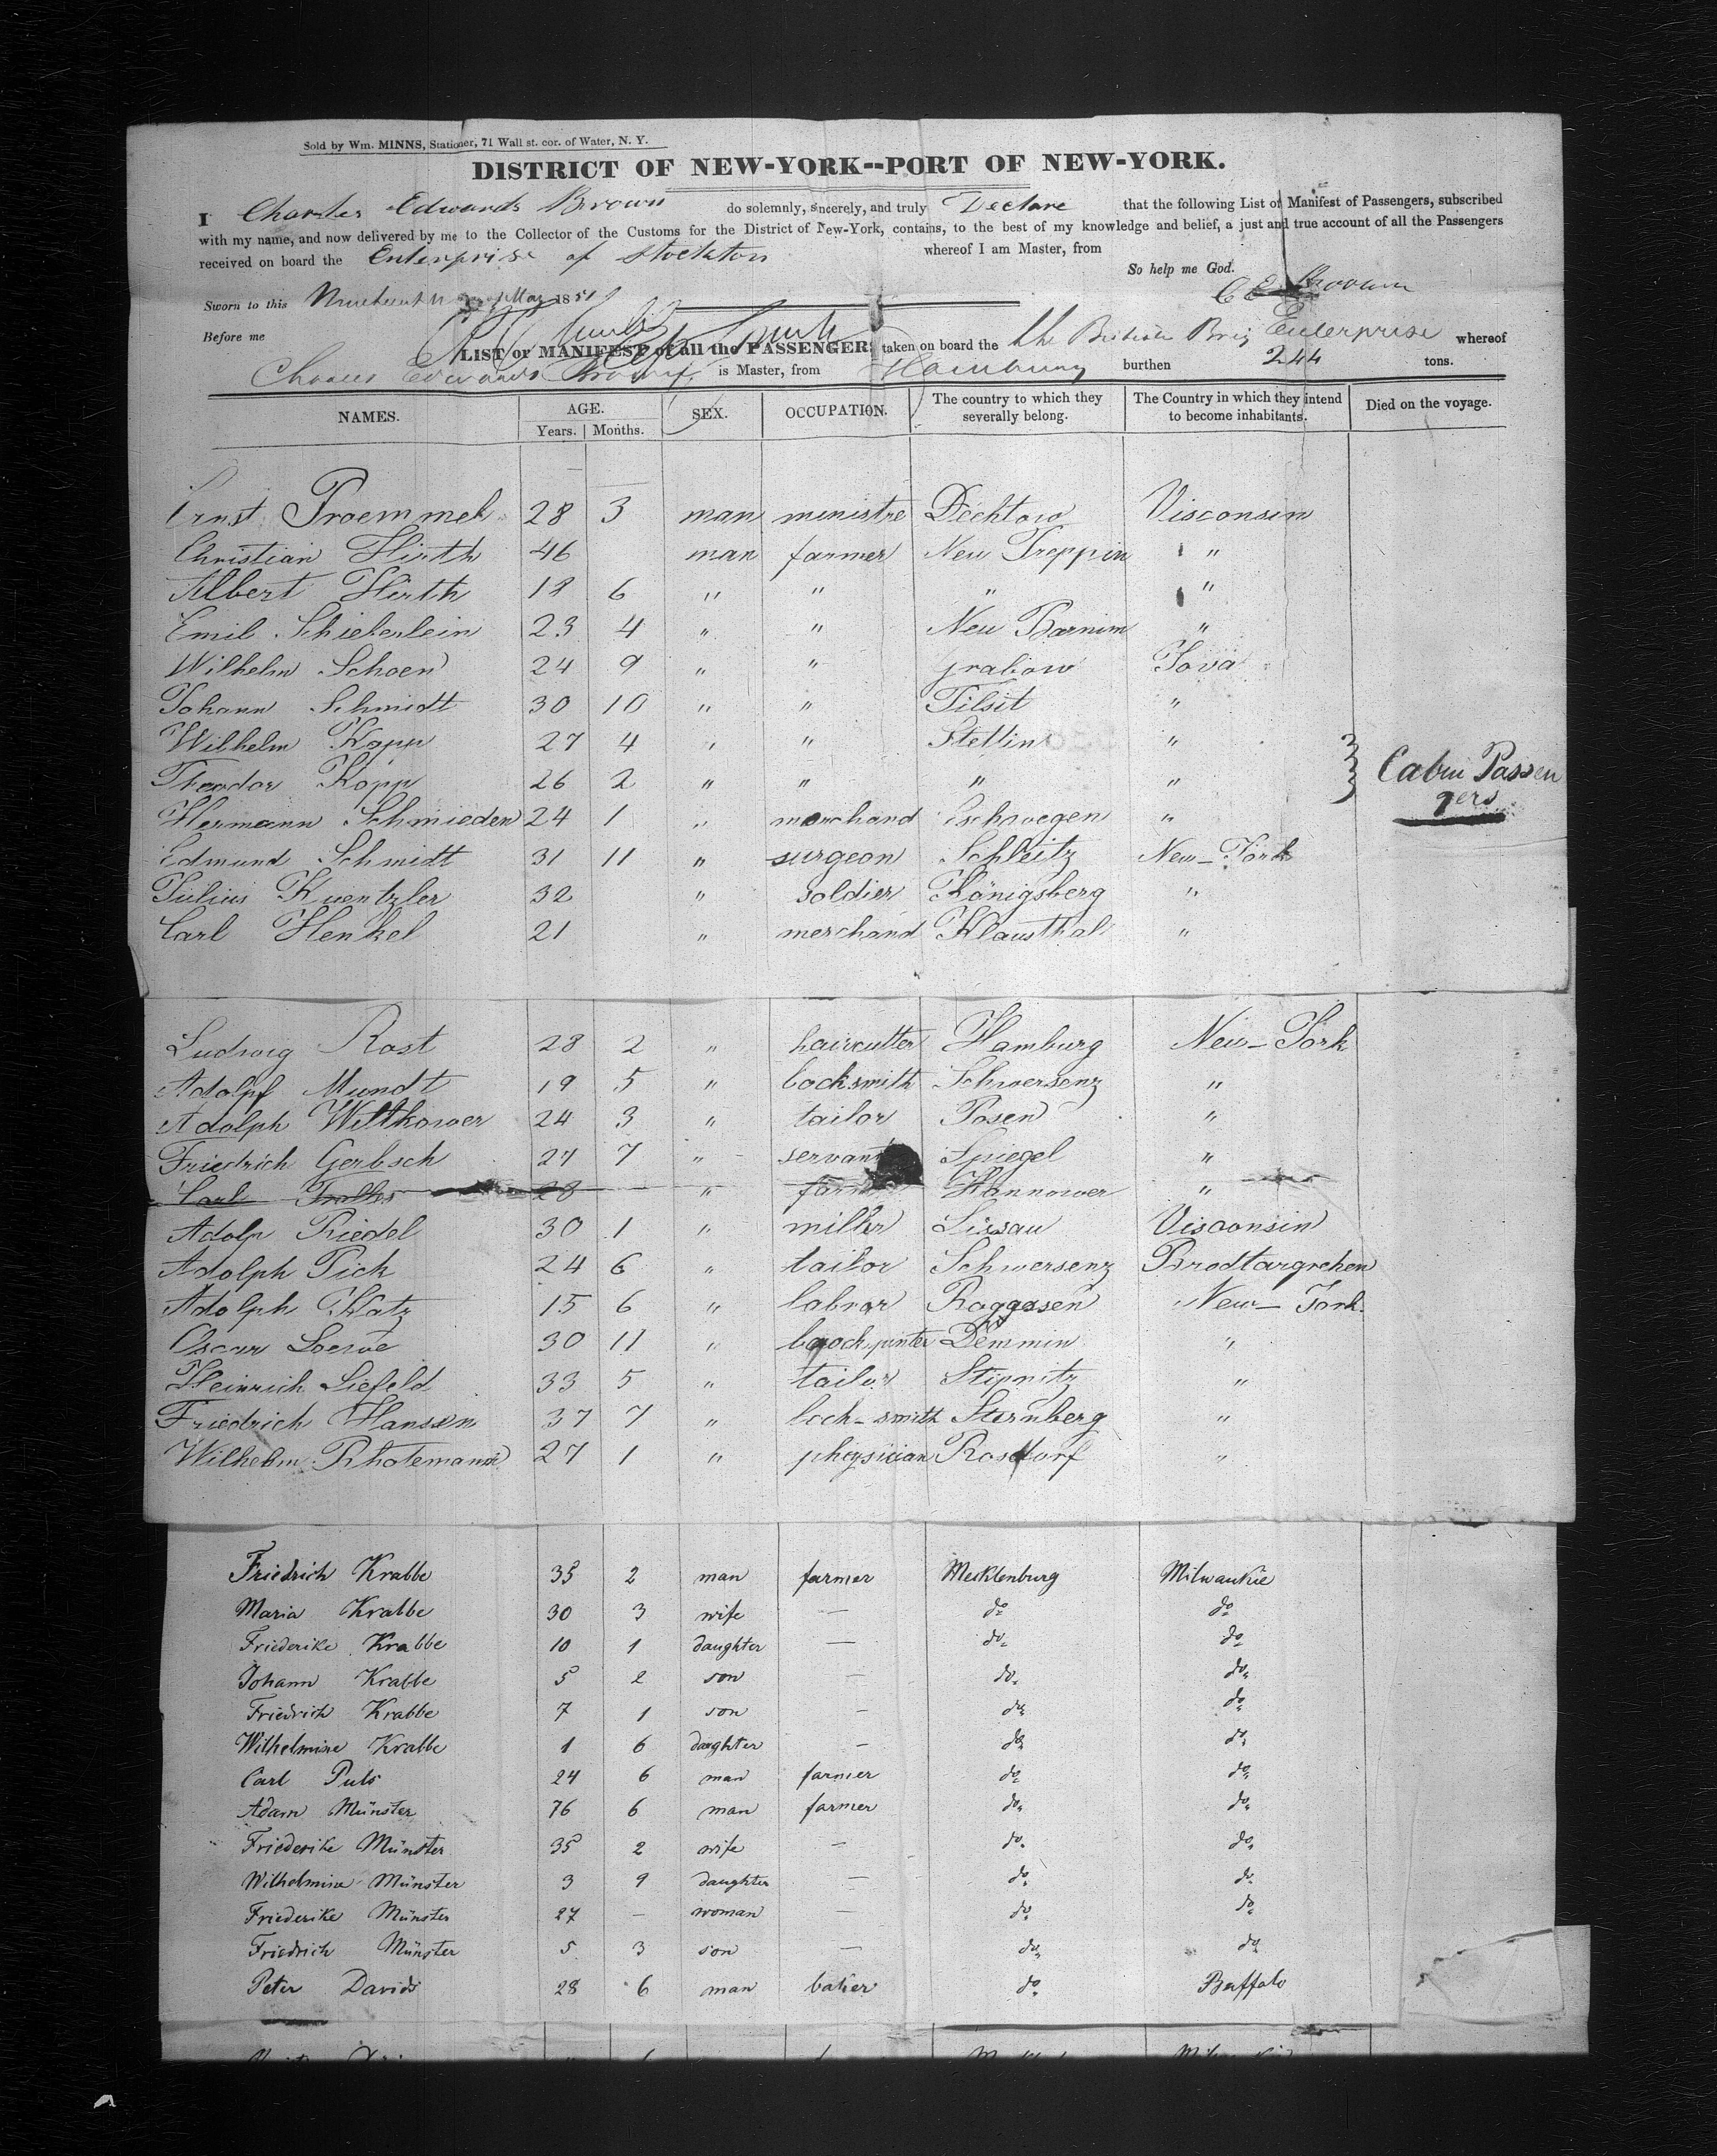 Sold by Wm. MINNS, Stationer, 71 Wall st. cor. of Water, N. Y.
DISTRICT OF NEW-YORK--PORT OF NEW-YORK.
I Charles Edwards Brown do solemnly, sincerely, and truly Declare that the following List or Manifest of Passengers, subscribed
with my name, and now delivered by me to the Collector of the Customs for the District of New-York, contains, to the best of my knowledge and belief, a just and true account of all the Passengers
received on board the Enterprise of Stockton whereof I am Master, from
So help me God.
Sworn to this May 1851 C E Brown
Before me
LIST or MANIFEST of all the PASSENGERS taken on board the the British Brig Enterprise whereof
Charles Edwards Brown is Master, from Hamburg burthen 244 tons.
NAMES. AGE. SEX. OCCUPATION. The country to which they severally belong. The Country in which they intend to become inhabitants. Died on the voyage.
Years. Months.
Ernst Proemmel 28 3 man ministre Dechtow Visconsin
Christian Hirth 46 man farmer Neu Treppin "
Albert Hirth 18 6 " " " "
Emil Schiebenlein 23 4 " " Neu Barnim "
Wilhelm Schoen 24 9 " " grabow Iova
Johann Schmidt 30 10 " " Tilsit "
Wilhelm Kopp 27 4 " " Stettin "
Theodor Kopp 26 2 " " " "
Cabin Passengers
Hermann Schmieden 24 1 " merchand Eschwegen "
Edmund Schmidt 31 11 " surgeon Schleitz New-York
Julius Kuentzler 32 " soldier Königsberg "
Carl Henkel 21 " merchand Klausthal "
Ludwig Rost 28 2 " haircutter Hamburg New-York
Adolpf Mundt 19 5 " locksmith Schwersenz "
Adolph Wittkower 24 3 " tailor Posen "
Friedrich Gerbsch 27 7 " servant Spiegel "
Carl 28 " farm Hannower "
Adolp Riedel 30 1 " miller Lissau Visconsin
Adolph Pick 24 6 " tailor Schwersenz Brodtargrehen
Adolph Katz 15 6 " labrar Roggasen New-York
Oscar Loewe 30 11 " Demmin "
Heinrich Liefeld 33 5 " tailor Stipnitz "
Friedrich Hansen 37 7 " lock-smith Sternberg "
Wilhelm Rhotemann 27 1 " physician Rosdorf "
Friedrich Krabbe 35 2 man farmer Mecklenburg Milwaukie
Maria Krabbe 30 3 wife — do do
Friederike Krabbe 10 1 daughter — do. do
Johann Krabbe 5 2 son — do. do.
Friedrich Krabbe 7 1 son — do. do
Wilhelmine Krabbe 1 6 daughter — do. do.
Carl Puls 24 6 man farmer do. do.
Adam Münster 76 6 man farmer do. do.
Friederike Münster 35 2 wife — do. do.
Wilhelmine Münster 3 9 daughter — do. do.
Friederike Münster 27 — woman — do. do
Friedrich Münster 5 3 son — do. do.
Peter Davids 28 6 man baker do Buffalo